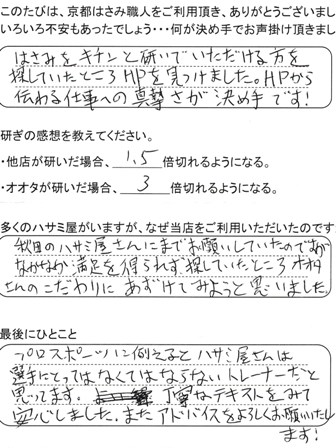 このたびは、京都はさみ職人をご利用頂き、ありがとうございまし
いろいろ不安もあったでしょう・・・何が決め手でお声掛け頂きまし
はさみをキチンと研いでいただける方を
探していたところHPを見つけました。HPから
伝わる仕事への真摯さが決め手です!
研ぎの感想を教えてください。
・他店が研いだ場合、 1.5 倍切れるようになる。
・オオタが研いだ場合、 3 倍切れるようになる。
多くのハサミ屋がいますが、なぜ当店をご利用いただいたのです
秋田のハサミ屋さんにまでお願いしていたのですが
なかなか満足を得られず、探していたところオオタ
さんのこだわりにあずけてみようと思いました
最後にひとこと
プロスポーツに例えるとハサミ屋さんは
選手にとってはなくてはならないトレーナーだと
思ってます。丁寧なテキストをみて
安心しました。またアドバイスをよろしくお願いいたし
ます!